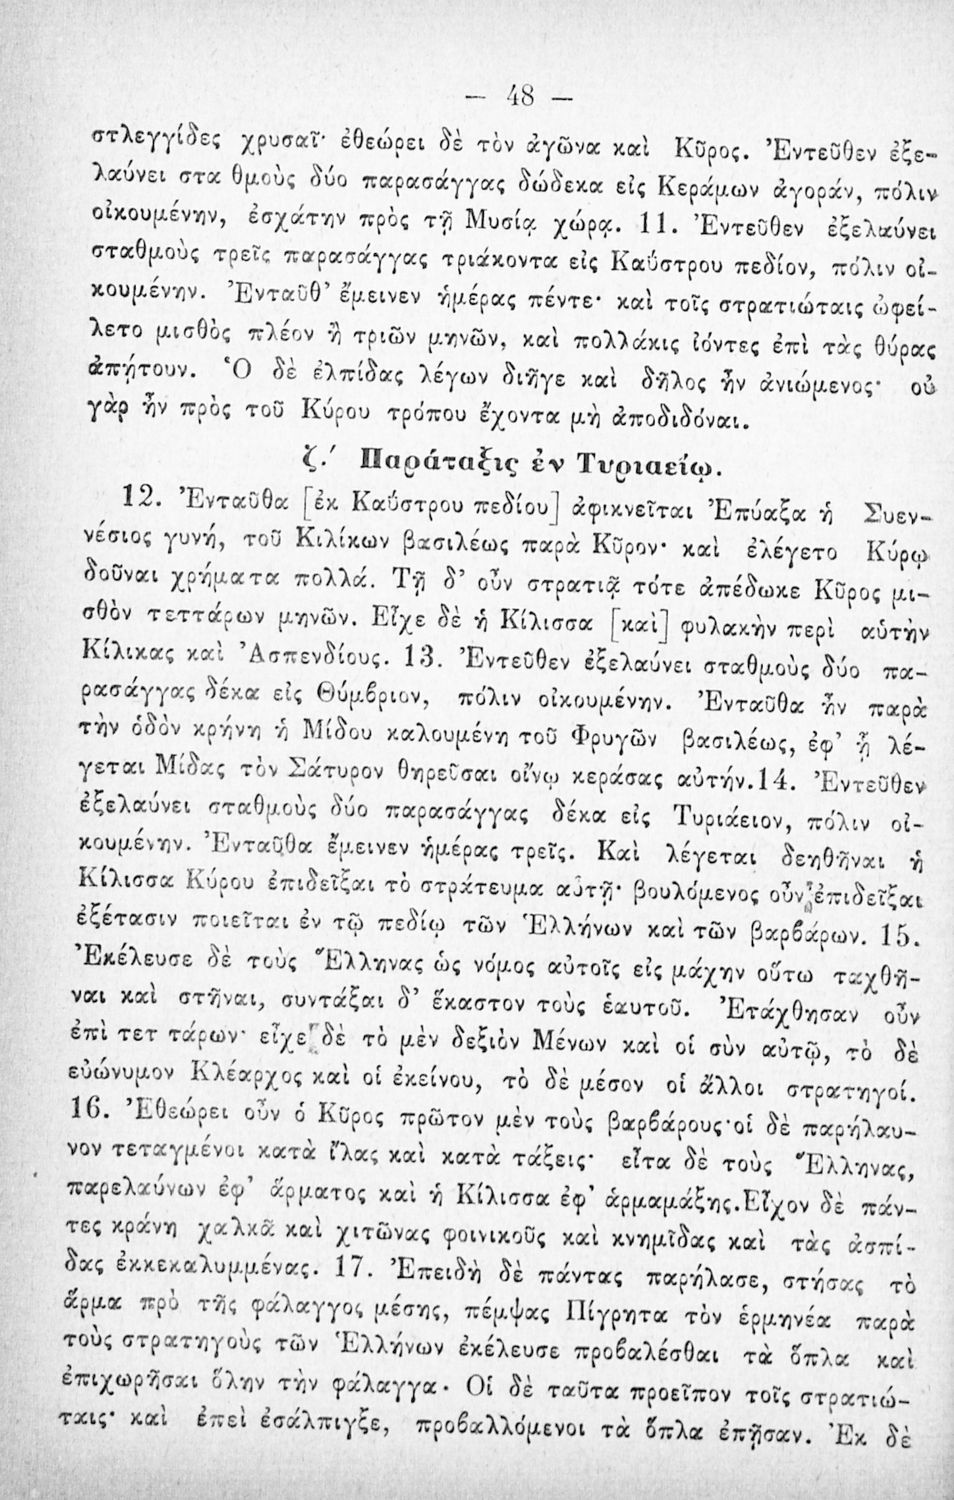 — 48 —
στλεγγίδες χρυσαῖ· ἐθεώρει δὲ τὸν ἀγῶνα καὶ Κῦρος. Ἐντεῦθεν ἐξε-
λαύνει στα θμοὺς δύο παρασάγγας δώδεκα εἰς Κεράμων ἀγοράν, πόλιν
οἰκουμένην, ἐσχάτην πρὸς τῇ Μυσίᾳ χώρᾳ. 11. Ἐντεῦθεν ἐξελαύνει
σταθμοὺς τρεῖς παρασάγγας τριάκοντα εἰς Καΰστρου πεδίον, πόλιν οἰ-
κουμένην. Ἐνταῦθ’ ἔμεινεν ἡμέρας πέντε· καὶ τοῖς στρατιώταις ὠφεί-
λετο μισθὸς πλέον ἢ τριῶν μηνῶν, καὶ πολλάκις ἰόντες ἐπὶ τὰς θύρας
ἀπῄτουν. Ὁ δὲ ἐλπίδας λέγων διῆγε καὶ δῆλος ἦν ἀνιώμενος· οὐ
γὰρ ἦν πρὸς τοῦ Κύρου τρόπου ἔχοντα μὴ ἀποδιδόναι.
ζ.′ Παράταξις ἐν Τυριαείῳ.
12. Ἐνταῦθα [ἐκ Καΰστρου πεδίου] ἀφικνεῖται Ἐπύαξα ἡ Συεν-
νέσιος γυνή, τοῦ Κιλίκων βασιλέως παρὰ Κῦρον· καὶ ἐλέγετο Κύρῳ
δοῦναι χρήματα πολλά. Τῇ δ’ οὖν στρατιᾷ τότε ἀπέδωκε Κῦρος μι-
σθὸν τεττάρων μηνῶν. Εἶχε δὲ ἡ Κίλισσα [καὶ] φυλακὴν περὶ αὑτὴν
Κίλικας καὶ Ἀσπενδίους. 13. Ἐντεῦθεν ἐξελαύνει σταθμοὺς δύο πα-
ρασάγγας δέκα εἰς Θύμβριον, πόλιν οἰκουμένην. Ἐνταῦθα ἦν παρὰ
τὴν ὁδὸν κρήνη ἡ Μίδου καλουμένη τοῦ Φρυγῶν βασιλέως, ἐφ’ ᾗ λέ-
γεται Μίδας τὸν Σάτυρον θηρεῦσαι οἴνῳ κεράσας αὐτήν.14. Ἐντεῦθεν
ἐξελαύνει σταθμοὺς δύο παρασάγγας δέκα εἰς Τυριάειον, πόλιν οἰ-
κουμένην. Ἐνταῦθα ἔμεινεν ἡμέρας τρεῖς. Καὶ λέγεται δεηθῆναι ἡ
Κίλισσα Κύρου ἐπιδεῖξαι τὸ στράτευμα αὐτῇ· βουλόμενος οὖν ἐπιδεῖξαι
ἐξέτασιν ποιεῖται ἐν τῷ πεδίῳ τῶν Ἑλλήνων καὶ τῶν βαρβάρων. 15.
Ἐκέλευσε δὲ τοὺς Ἕλληνας ὡς νόμος αὐτοῖς εἰς μάχην οὕτω ταχθῆ-
ναι καὶ στῆναι, συντάξαι δ’ ἕκαστον τοὺς ἑαυτοῦ. Ἐτάχθησαν οὖν
ἐπὶ τετ τάρων· εἶχε δὲ τὸ μὲν δεξιὸν Μένων καὶ οἱ σὺν αὐτῷ, τὸ δὲ
εὐώνυμον Κλέαρχος καὶ οἱ ἐκείνου, τὸ δὲ μέσον οἱ ἄλλοι στρατηγοί.
16. Ἐθεώρει οὖν ὁ Κῦρος πρῶτον μὲν τοὺς βαρβάρους·οἱ δὲ παρήλαυ-
νον τεταγμένοι κατὰ ἴλας καὶ κατὰ τάξεις· εἶτα δὲ τοὺς Ἕλληνας,
παρελαύνων ἐφ’ ἅρματος καὶ ἡ Κίλισσα ἐφ’ ἁρμαμάξης.Εἶχον δὲ πάν-
τες κράνη χαλκᾶ καὶ χιτῶνας φοινικοῦς καὶ κνημῖδας καὶ τὰς ἀσπί-
δας ἐκκεκαλυμμένας. 17. Ἐπειδὴ δὲ πάντας παρήλασε, στήσας τὸ
ἅρμα πρὸ τῆς φάλαγγος μέσης, πέμψας Πίγρητα τὸν ἑρμηνέα παρὰ
τοὺς στρατηγοὺς τῶν Ἑλλήνων ἐκέλευσε προβαλέσθαι τὰ ὅπλα καὶ
ἐπιχωρῆσαι ὅλην τὴν φάλαγγα· Οἱ δὲ ταῦτα προεῖπον τοῖς στρατιώ-
ταις· καὶ ἐπεὶ ἐσάλπιγξε, προβαλλόμενοι τὰ ὅπλα ἐπῇσαν. Ἐκ δὲ